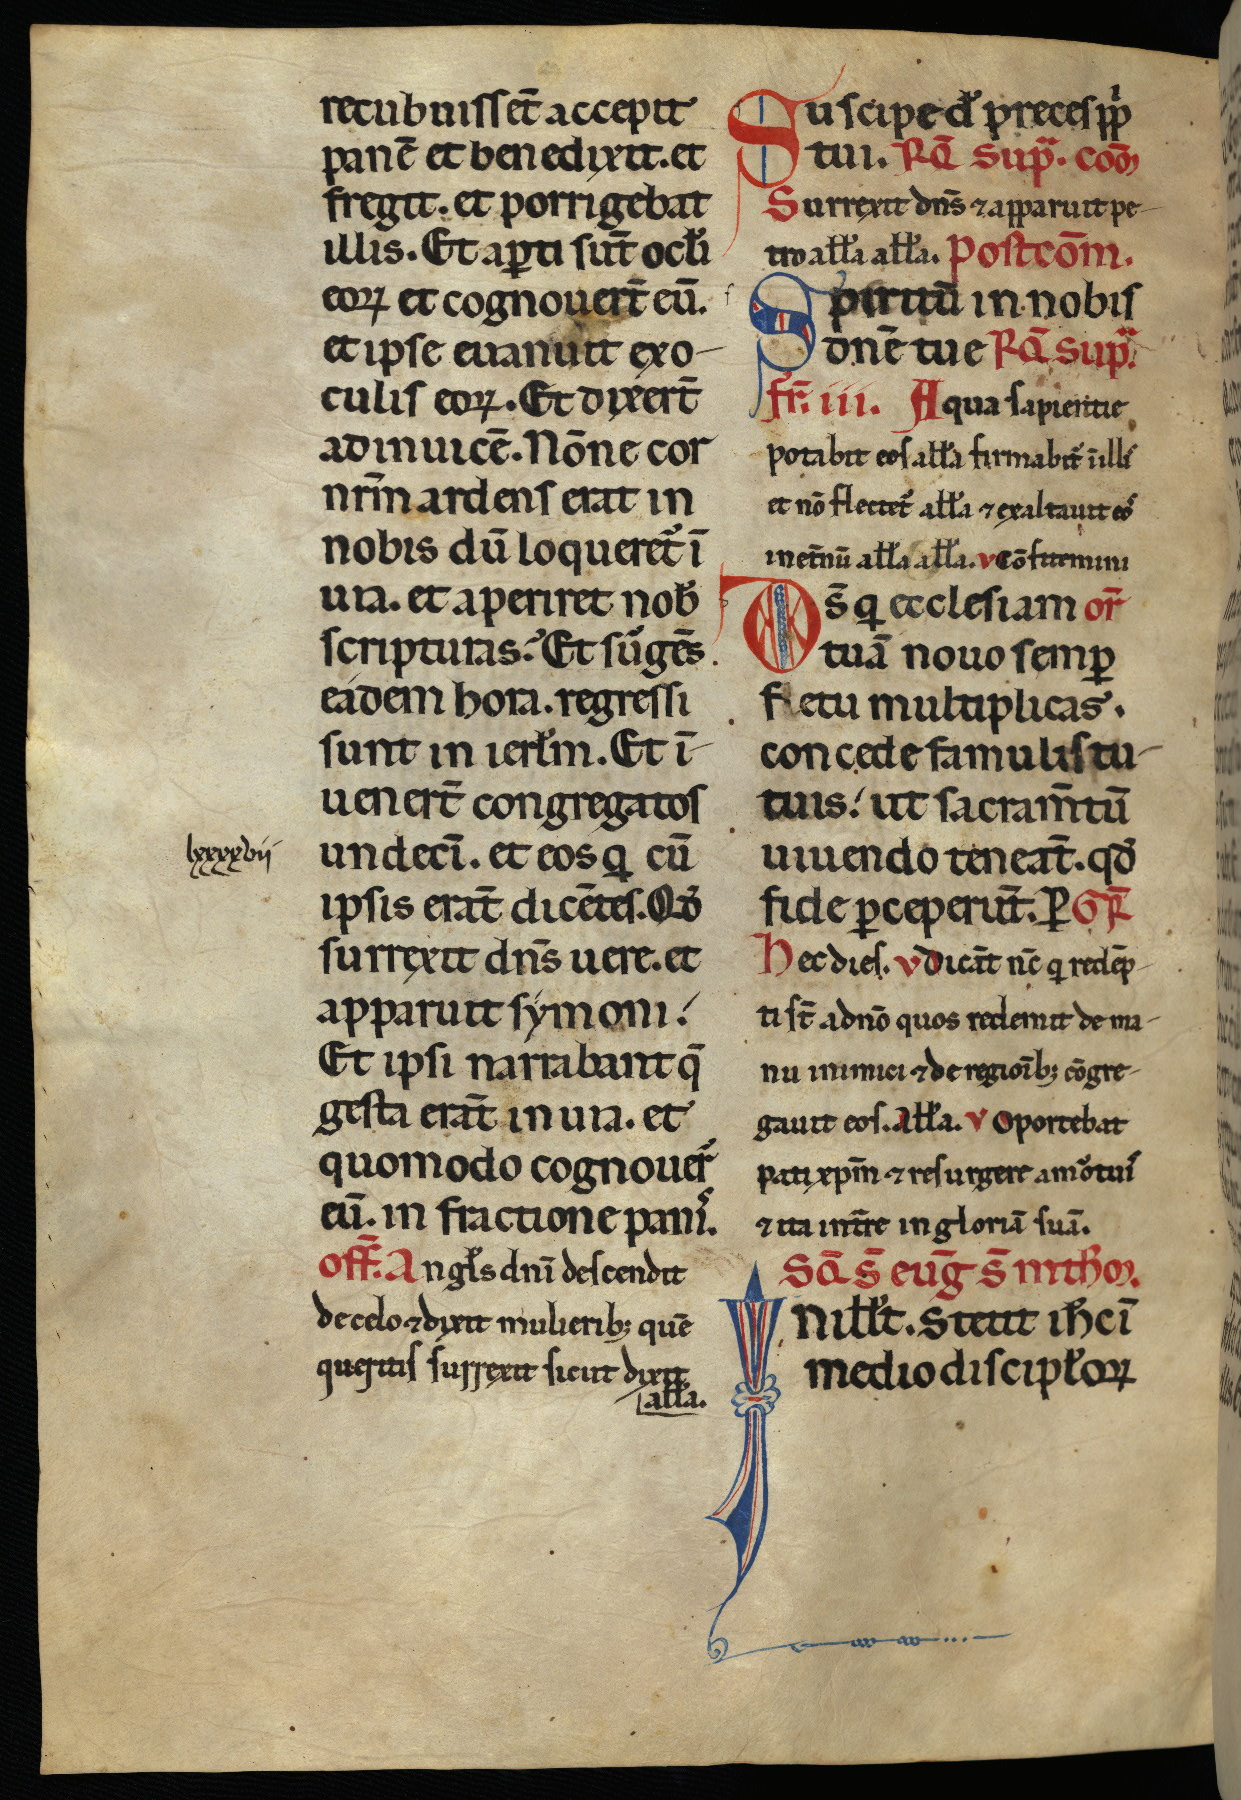 recubuisset̄ accepit
panē et benedixit. et
fregit. et porrigebat
illis. Et aꝑti sūt ocłi
eoꝝ et cognouert̄ eū.
et ipse euanuit exo-
culis eoꝝ. Et dixert̄
adinuicē. Nōne cor
nr̄m ardens erat in
nobis dū loqueret᷑ ī
uia. et aperiret nob̄
scripturas? Et sūgēs
eadem hora. regressi
sunt in ierłm. Et ī-
uenert̄ congregatos
lxxxxvii
undecī. et eos q̄ cū
ipsis erāt dicētes. Qđ
surrexit dn̄s uere. et
apparuit symoni.
Et ipsi narrabant q̄
gesta erāt in uia. et
quomodo cognouer̄
eū. in fractione panis.
Off̄. Angłs dn̄i descendit
de celo ⁊ dixit mulierib; quē
queritis surrexit sicut dixit
ałła.
Suscipe d̄s preces ppłi
tui. Rq̄ sup̄ᵃ. com̄
Surrexit dn̄s ⁊ apparuit pe-
tro ałła ałła. Postcōm.
Spiritū in nobis
dn̄e tue Rq̄ sup̄ᵃ.
fr̄. iii. Aqua sapientie
potabit eos ałła firmabit᷑ ī illi
et nō flectet᷑ ałła ⁊ exaltauit eos
in et̄nū ałła ałła. v Cōfitemini
Ds̄ q̄ ecclesiam or̄
tuā nouo semꝑ
fetu multiplicas.
concede famulis tu-
tuis. ut sacram̄tū
uiuendo teneāt. qđ
fide ꝑceperūt. Ꝑ GR̄
Hec dies. v Dicāt nc̄ q̄ redēp-
ti st̄ a dn̄o quos redemit de ma-
nu inimici ⁊ de regiōib; cōgre-
gauit eos. Ałła. v Oportebat
pati xp̄m ⁊ resurgere a mortuis
⁊ ita int̄re in gloriā suā.
Sq̄ s̄ eūg s̄ mtħm.
INillo t̄. Stetit iħc ī
medio discipłoꝝ